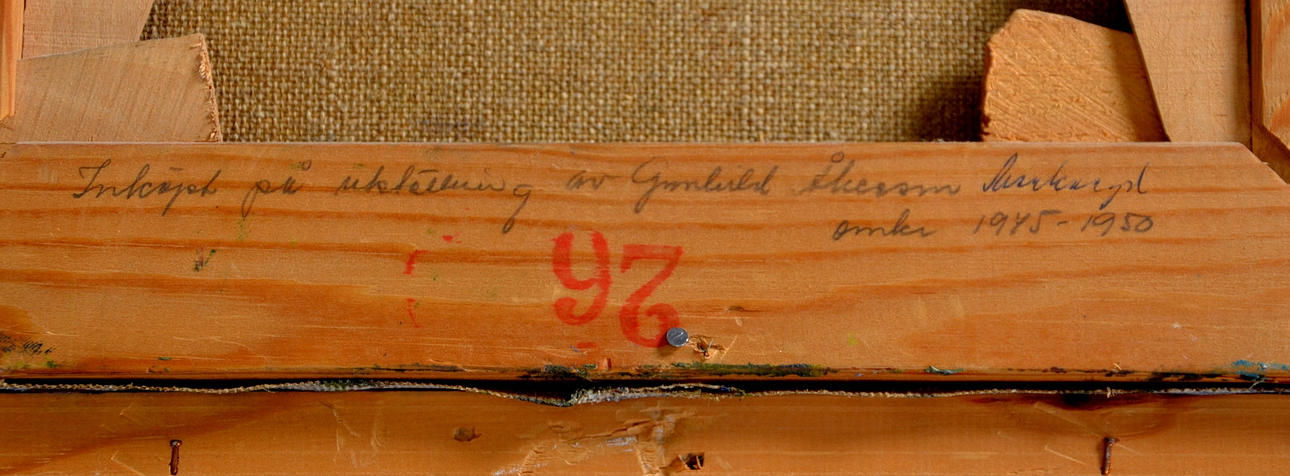 Inköpt på utställning av Gunhild Åkesson Markaryd
omkr 1945-1950
26